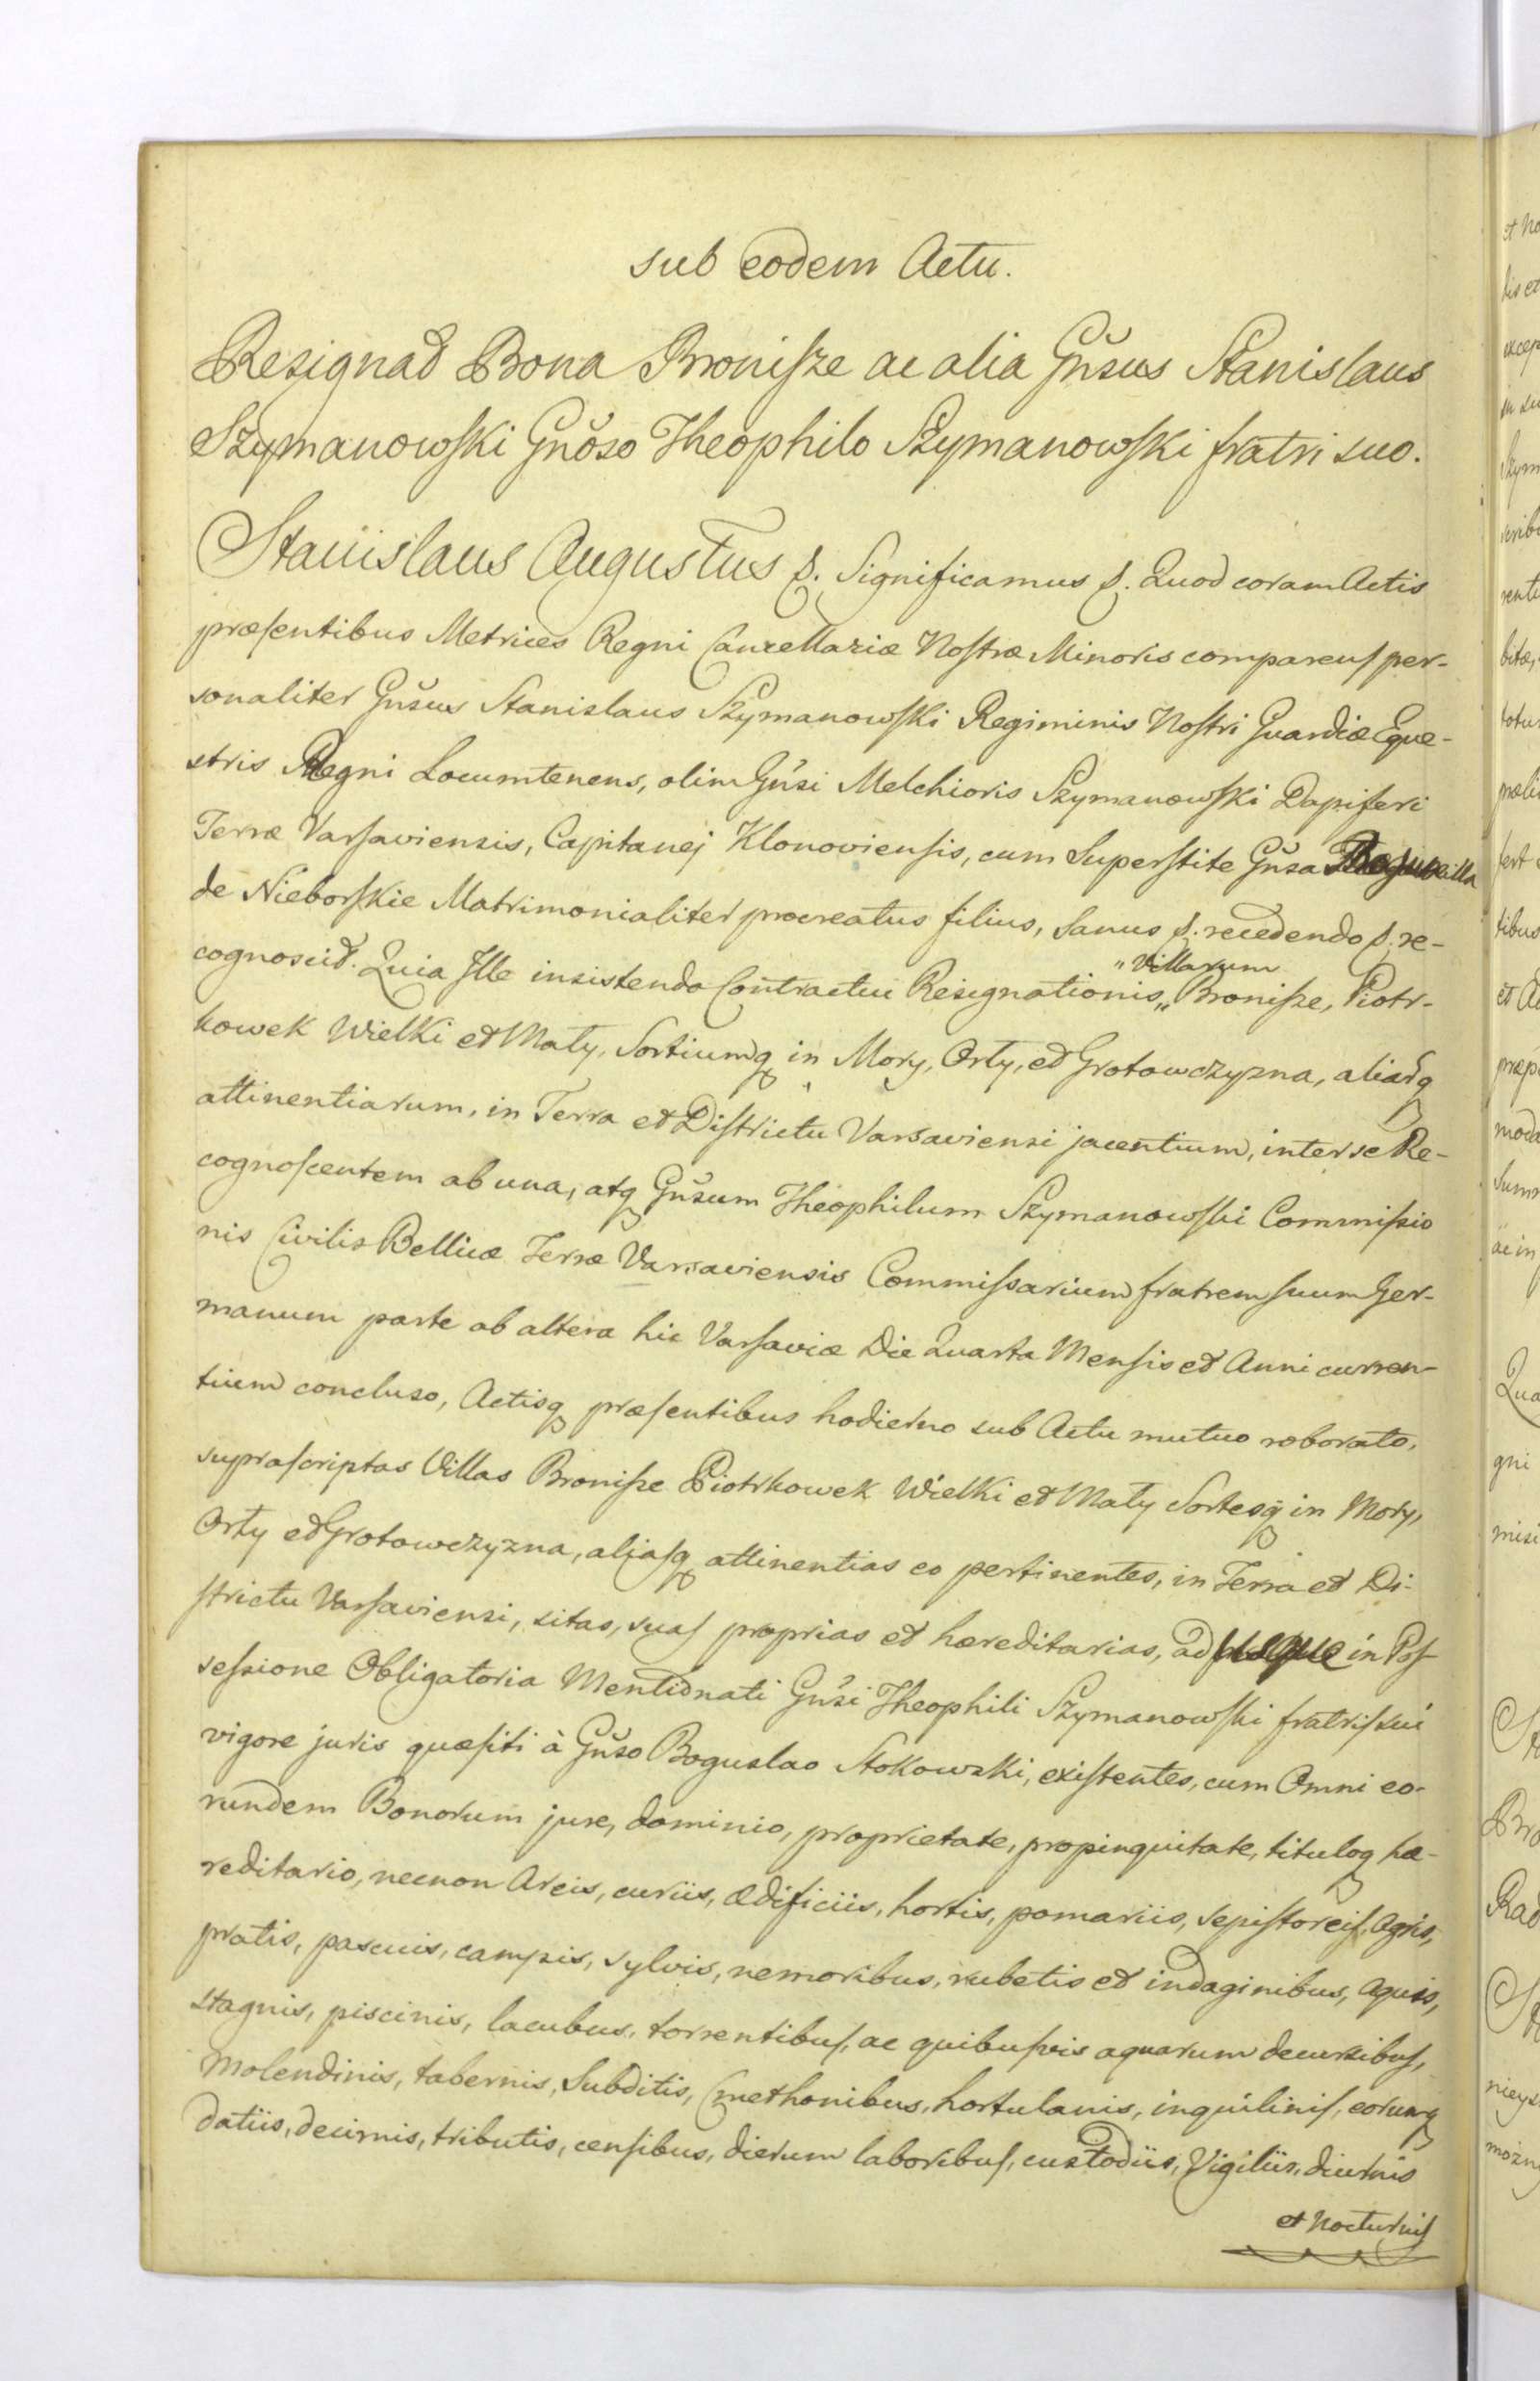 sub eodem Actu.
Resignat Bona Bronisze ac alia Gn̆sus Stanislaus
Szymanowski Gnŏso Theophilo Szymanowski fratri suo.
Stanislaus Augustus &. Significamus &. Quod coram Actis
præsentibus Metrices Regni Cancellariæ Nostræ Minoris comparens per-
sonaliter Gn̆sus Stanislaus Szymanowski Regiminis Nostri Guardiæ Eque-
stris Regni Locumtenens, olim Gn̆si Melchioris Szymanowski Dapiferi
Terræ Varsaviensis, Capitanej Klonoviensis, cum Superstite Gn̆sa
de Nieborskie Matrimonialiter procreatus filius, Sanus &. recedendo &. re-
cognoscit. Quia Ille insistendo Contractui Resignationis „ Bronisze, Piotr-
„Villarum
kowek Wielki et Mały, Sortiumq in Mory, Orły, et Grotowczyzna, aliarq
attinentiarum, in Terra et Districtu Varsaviensi jacentium, inter se Re-
cognoscentem ab una, atq Gn̆sum Theophilum Szymanowski Commissio
nis Civilis Bellicæ Terræ Varsaviensis Commissarium fratrem suum Ger-
manum parte ab altera hic Varsaviæ Die Quarta Mensis et Anni curren-
tium concluso, Actisq præsentibus hodierno sub Actu mutuo roborato,
suprascriptas Villas Bronisze Piotrkowek Wielki et Mały Sortesq in Mory,
Orły et Grotowczyzna, aliasq attinentias eo pertinentes, in Terra et Di-
strictu Varsaviensi, sitas, suas proprias et hæreditarias, ad usque in Pos-
sessione Obligatoria Mentionati Gn̆si Theophili Szymanowski fratris sui
vigore juris quæsiti à Gn̆so Boguslao Stokowski, existentes, cum Omni eo-
rundem Bonorum jure, dominio, proprietate, propinquitate, tituloq hæ-
reditario, necnon Areis, curiis, Ædificiis, hortis, pomariis, sepistoreis, Agris,
pratis, pascuis, campis, sylvis, nemoribus, rubetis et indaginibus, Aquis,
stagnis, piscinis, lacubus, torrentibus, ac quibusvis aquarum decursibus,
Molendinis, tabernis, Subditis, Cmethonibus, hortulanis, inquilinis, eorumq
datiis, decimis, tributis, censibus, dierum laboribus, custodiis, Vigiliis, diurnis
et Nocturnis